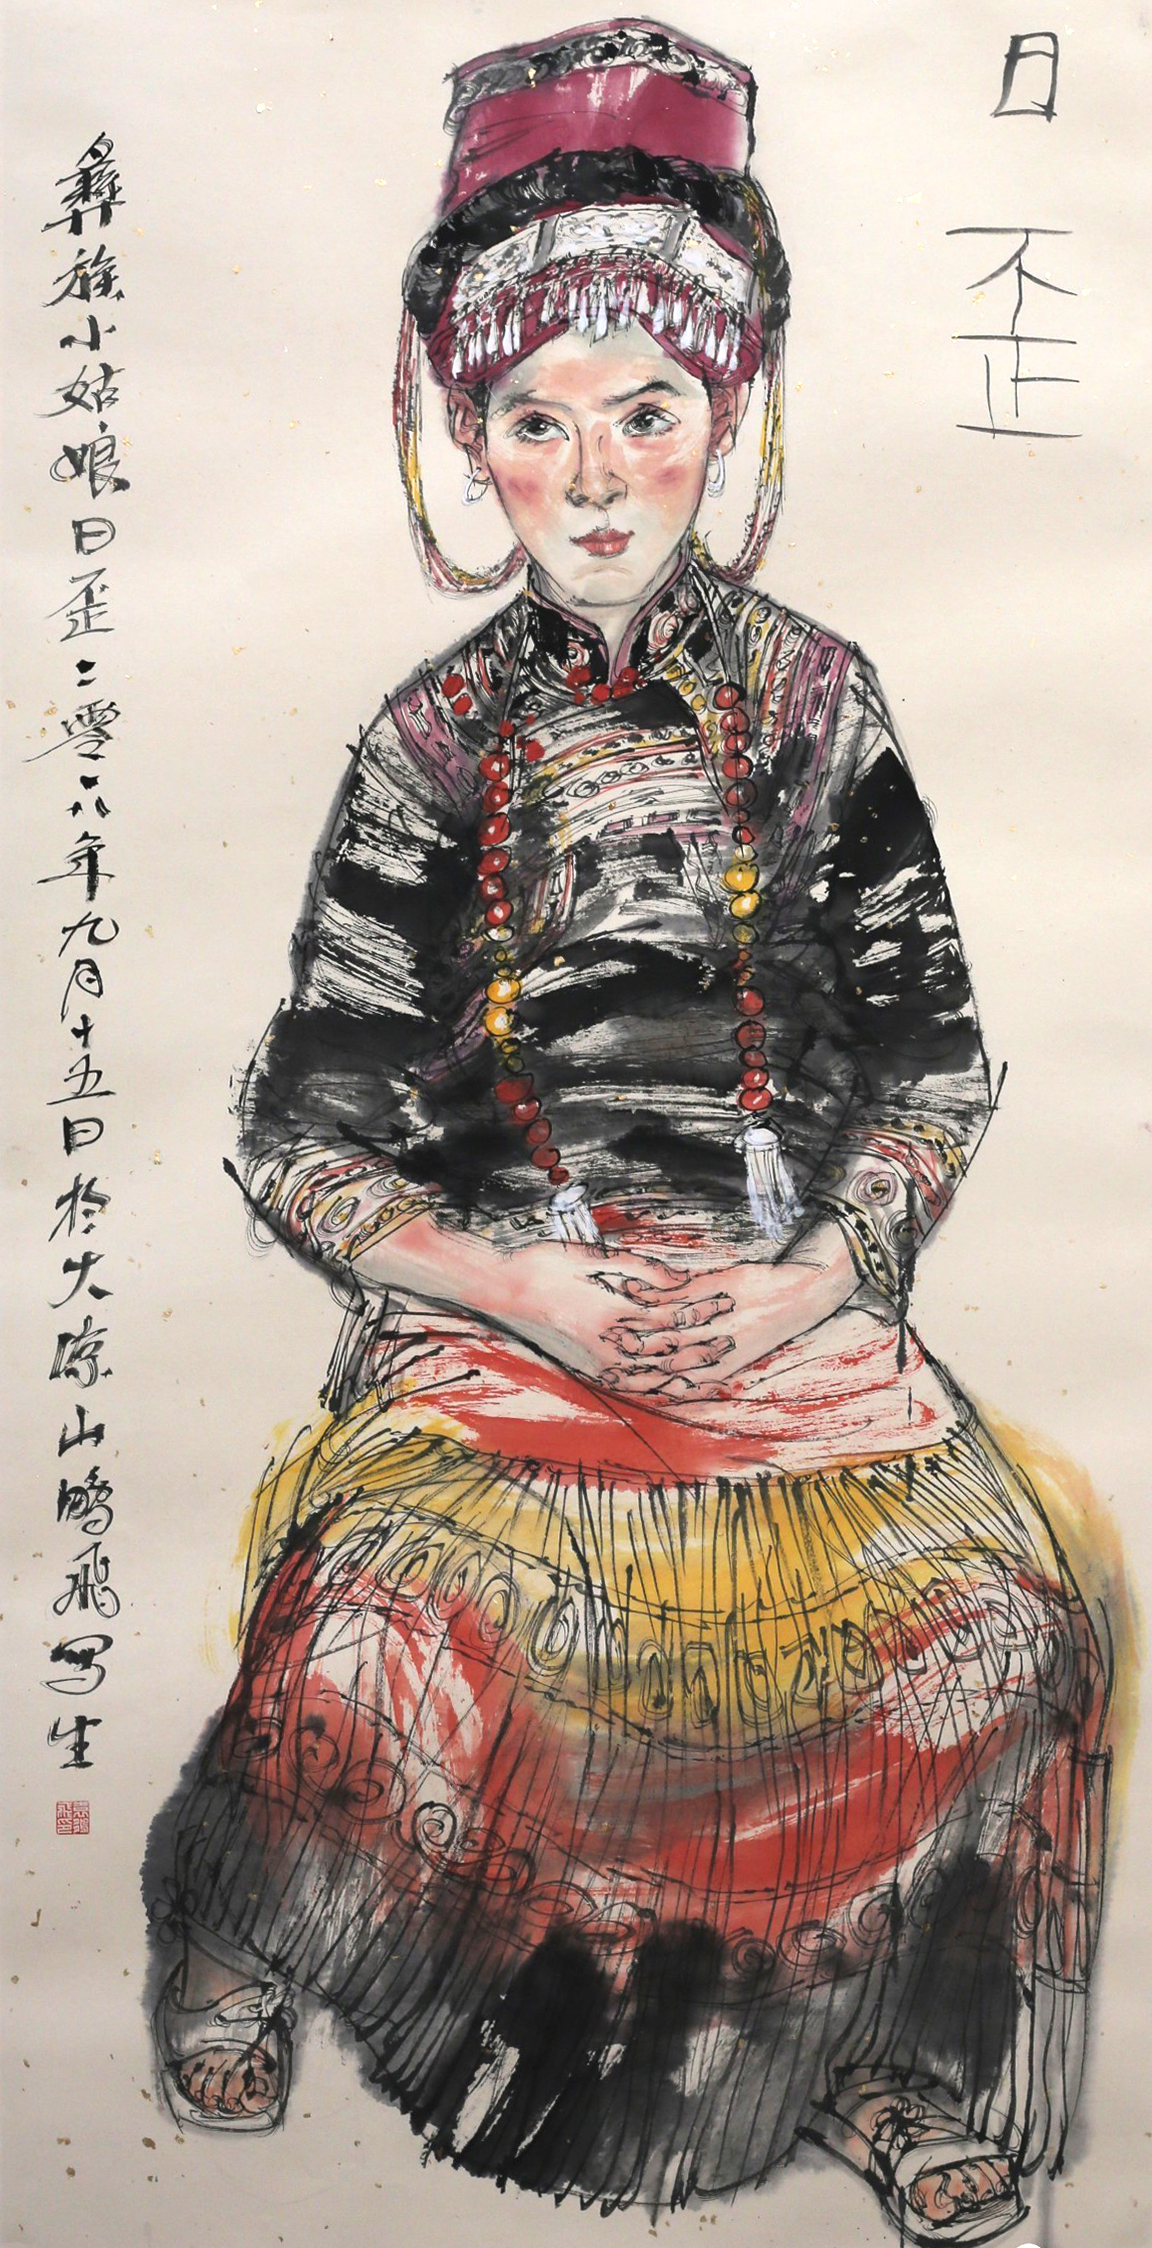 日歪
彝族小姑娘日歪二零一六年九月十五日於大凉山鹏飛写生